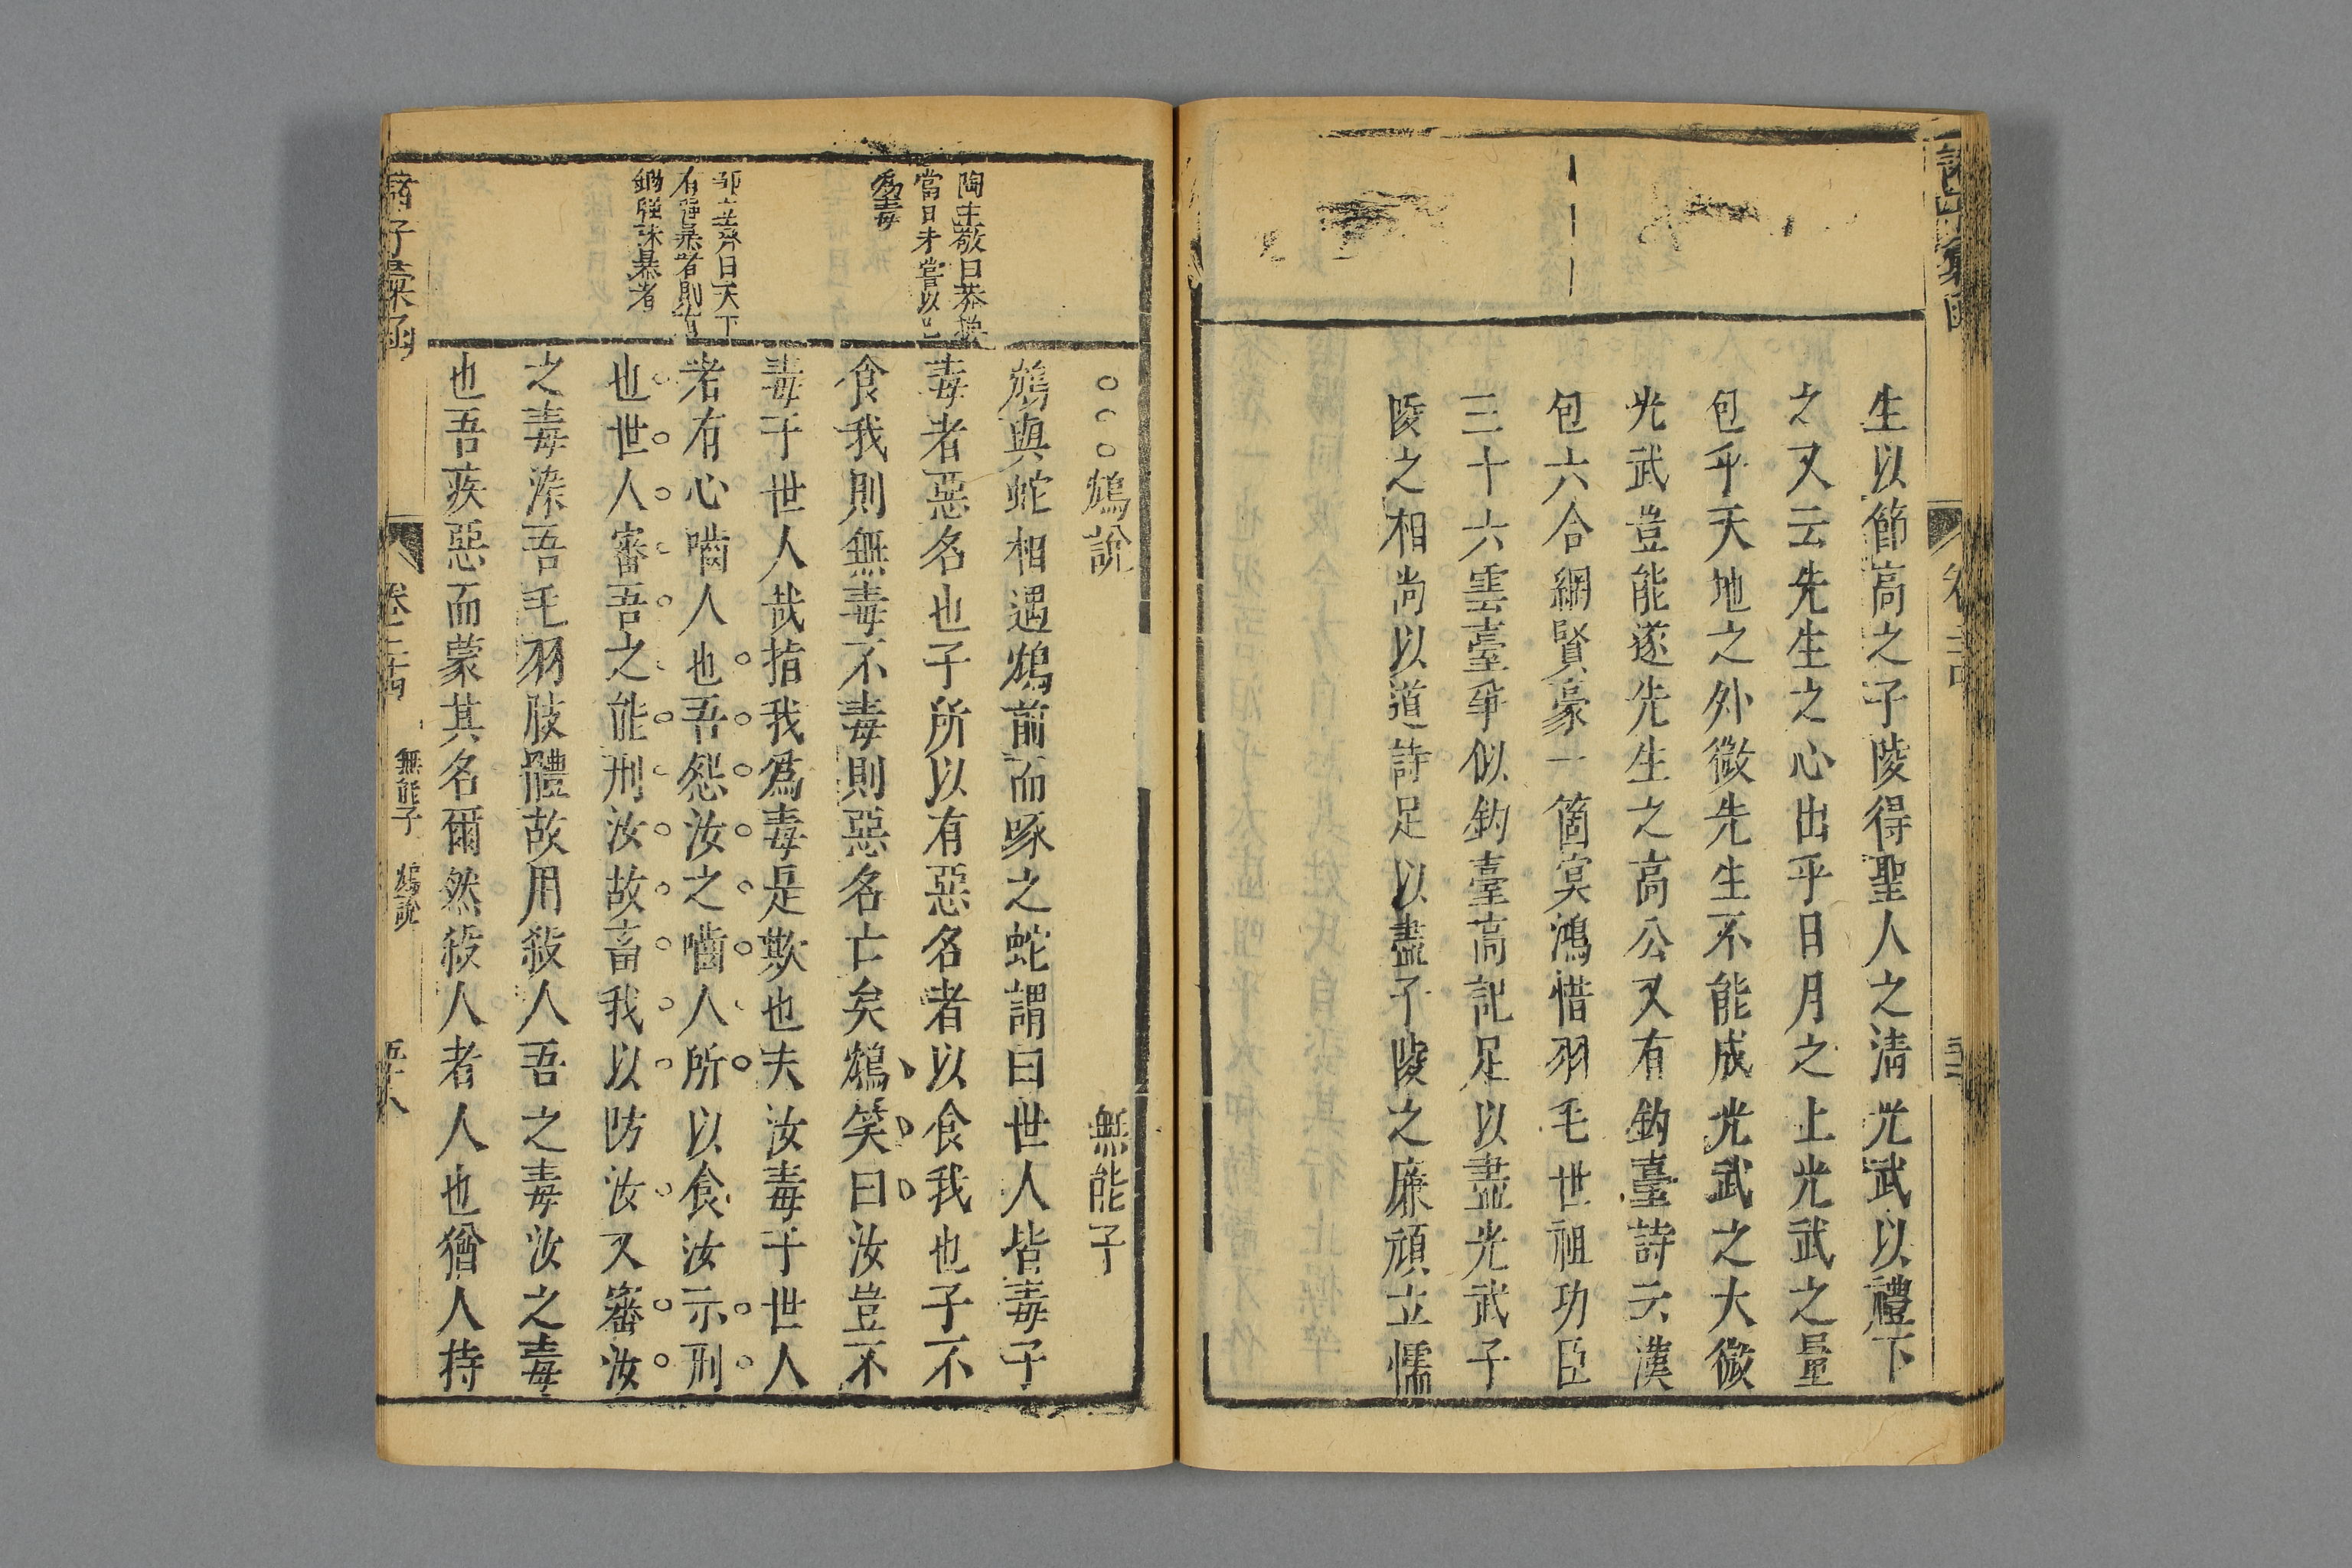 生以節高之子陵得聖人之清光武以禮下
之又云先生之心出乎日月之上光武之量
包乎天地之外微先生不能成光武之大微
光武豈能遂先生之高公又有釣臺詩云漢
包六合網賢豪一箇冥鴻惜羽毛世祖功臣
三十六雲臺爭似釣臺高記足以盡光武子
陵之相尚以道詩足以盡子陵之廉頑立懦
陶主敬曰莽操
當日才嘗以己
為毒
邹立齊曰天下
有強暴者則有
鋤強誅暴者
○○○鴆說
無能子
鴆與蛇相遇鴆前而啄之蛇謂曰世人皆毒子
毒者惡名也子所以有惡名者以食我也子不
食我則無毒不毒則惡名亡矣鴆笑曰汝豈不
毒于世人哉指我為毒是欺也夫汝毒于世人
者有心嚙人也吾怨汝之嚙人所以食汝示刑
也世人審吾之能刑汝故畜我以防汝又審汝
之毒染吾毛羽肢體故用殺人吾之毒汝之毒
也吾疾惡而蒙其名爾然殺人者人也猶人持
諸子彙函
卷二十四
無能子
鴆說